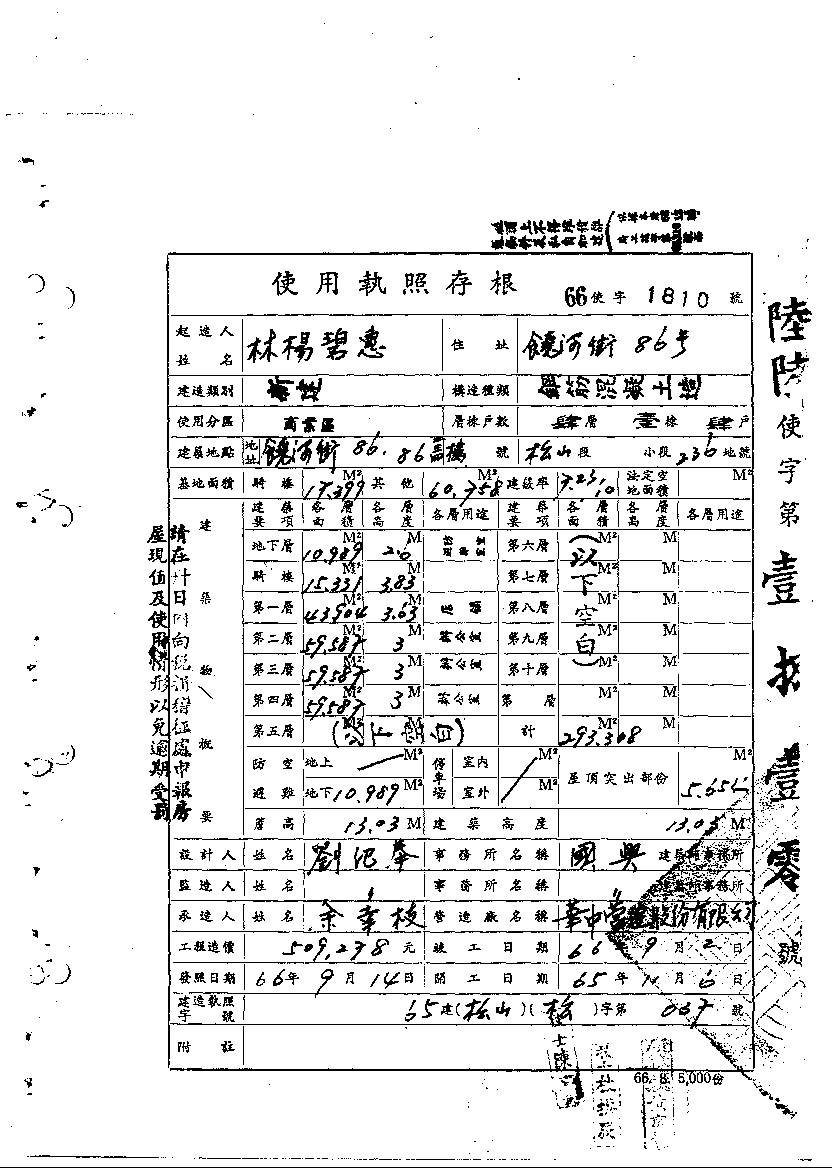 使用執照存根 66使字1810號
起造人姓名 林楊碧惠 住址 饒河街86号
建造類別 新建 構造種類 鋼筋混凝土造
使用分區 商業區 層棟戶數 肆層 壹棟 肆戶
建築地點 地址 饒河街86.86 樓 號 松山段 小段236地號
基地面積 騎樓 17.399 M² 其他 60.758 M² 建蔽率 法定空地面積 M²
建築要項 各層面積 各層高度 各層用途 建築要項 各層面積 各層高度 各層用途
地下層 10.989 M² 2.6 M 第六層 M² M
騎樓 15.331 M² 3.83 M 第七層 M² M
第一層 43.904 M² 3.63 M 店舖 第八層 M² M
第二層 59.587 M² 3 M 辦公室 第九層 M² M
第三層 59.587 M² 3 M 辦公室 第十層 M² M
第四層 59.587 M² 3 M 辦公室 第 層 M² M
(以下空白)
第五層 M² M (以下空白) 計 293.308 M² M
防空避難 地上 M² 停車場 室內 M² 屋頂突出部份 M²
地下 10.989 M² 室外 M² 5.654
簷高 13.03 M 建築高度 13.03 M
建築物概要
設計人 姓名 事務所名稱 國興 建築師事務所
監造人 姓名 〃 事務所名稱 〃 建築師事務所
承造人 姓名 余幸枝 營造廠名稱 華中營造股份有限公司
工程造價 509,238元 竣工日期 66年9月2日
發照日期 66年9月14日 開工日期 65年11月6日
建造執照字號 65建(松山)(松)字第067號
附註
66. 8. 5,000份
請在卅日內向稅捐稽征處申報房
屋現值及使用情形以免逾期受罰
陸陸使字第壹 捌 壹零號